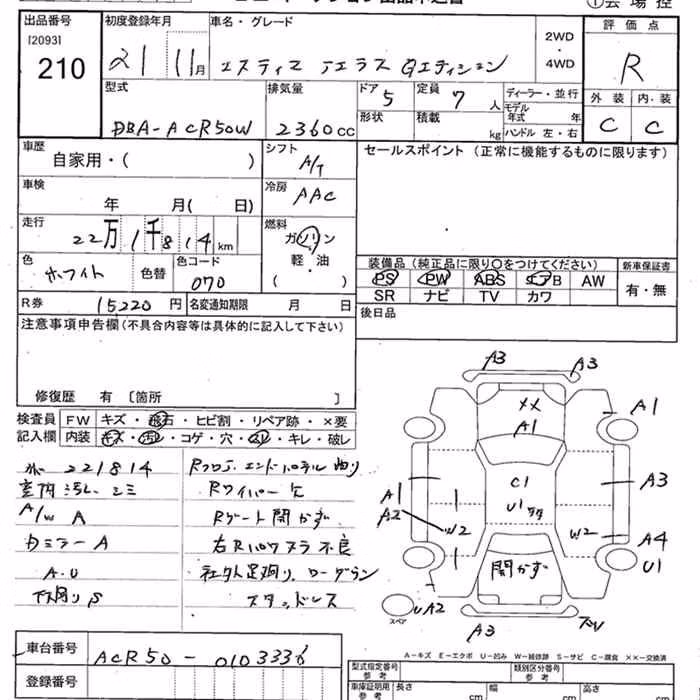 ①会場控
出品番号 初度登録年月 車名・グレード 評価点
[2093] 210 21 11月 エスティマ アエラス Gエディション 2WD・4WD R
型式 排気量 ドア 5 定員 7人 ディーラー・並行 外装 内装
DBA-ACR50W 2360cc 形状 積載 kg モデル年式 年 ハンドル 左・右 C C
車歴 自家用・( ) シフト A/T セールスポイント(正常に機能するものに限ります)
車検 年 月( 日) 冷房 AAC
走行 22万1千814km 燃料 ガソリン 軽・油 ( )
色 ホワイト 色替 色コード 070
装備品(純正品に限り○をつけてください) 新車保証書
PS PW ABS エアB AW 有・無
SR ナビ TV カワ
R券 15220円 名変通知期限 月 日 後日品
注意事項申告欄(不具合内容等は具体的に記入して下さい)
修復歴 有 〔箇所 〕
検査員 FW キズ・飛石・ヒビ割・リペア跡・×要
記入欄 内装 キズ・汚レ・コゲ・穴・スレ・キレ・破レ
221814
室内汚レ シミ
A/W A
カミラー A
A.U
下廻り S
Rフロ エンドパネル 曲り
Rワイパー欠
Rゲート開かず
右Rパワスラ不良
社外足廻り ローダウン
スタッドレス
A3 A3
XX A1 A1
A1 C1 A3
A2 U1
W2 W2 A4
開かず U1
スペア UA2
A3
A-キズ E-エクボ U-凹み W-補修跡 S-サビ C-腐食 ××-交換済
車台番号 ACR50-0103336
登録番号
型式指定番号 参考 類別区分番号 参考
車庫証明用 参考 長さ cm 幅 cm 高さ cm